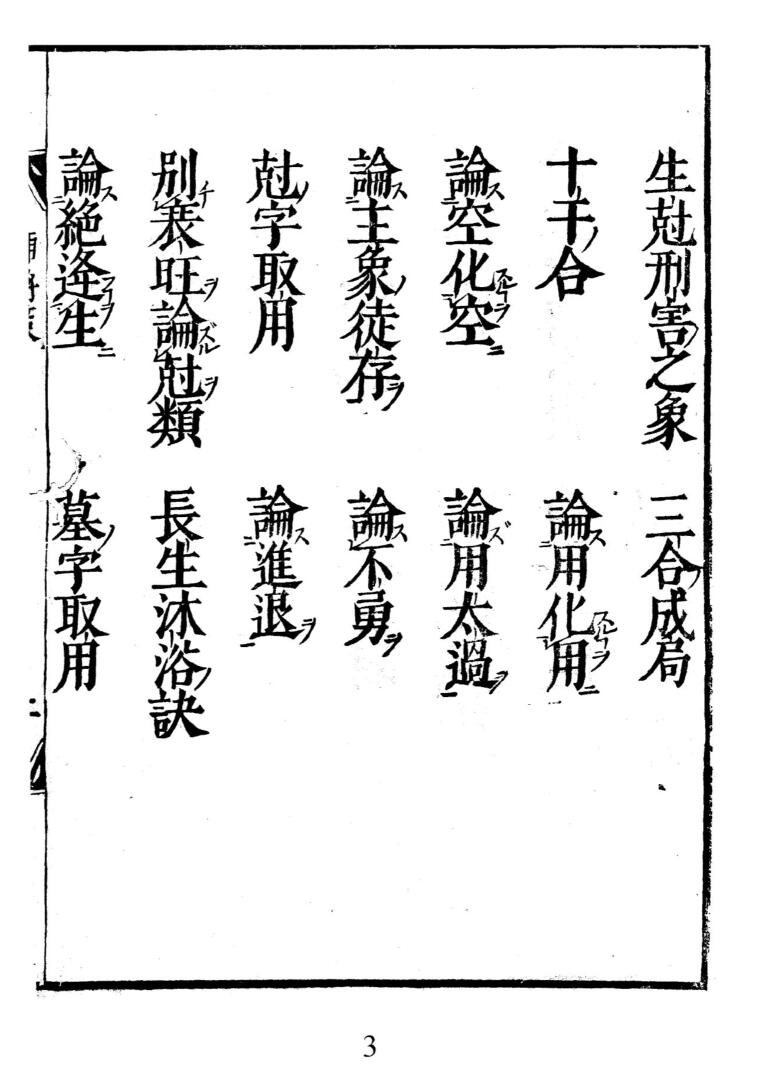 生尅刑害之象　三合成局
十干合　論用化用
論空化空　論用太過
論主象徒存　論不勇
尅字取用　論進退
別衰旺論尅類　長生沐浴訣
論絶逢生　墓字取用
3